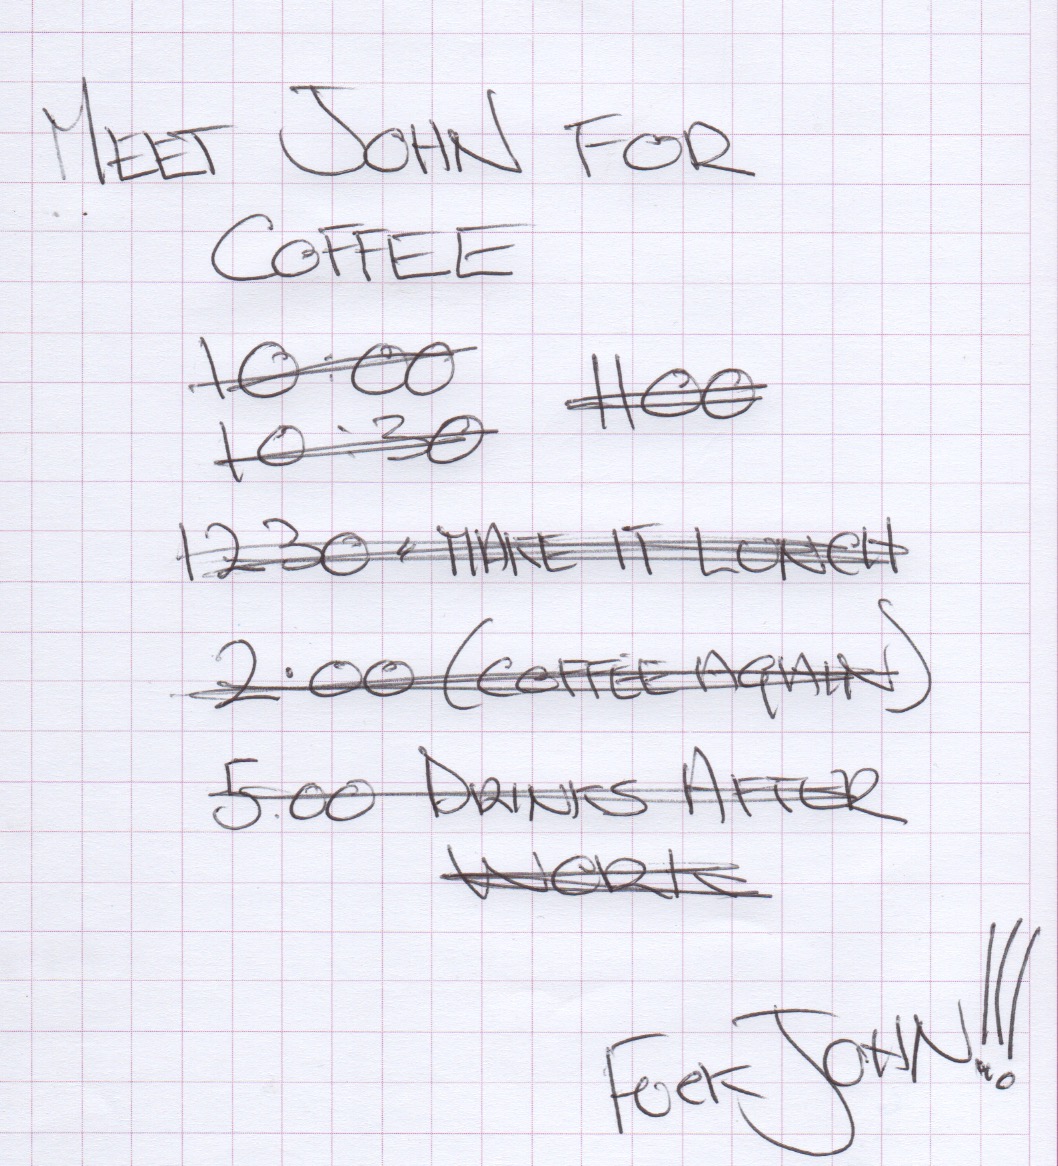 MEET JOHN FOR
COFFEE
10:00 1100
10:30
1230 • MAKE IT LUNCH
2.00 (COFFEE AGAIN)
5.00 DRINKS AFTER
WORK
FUCK JOHN!!!